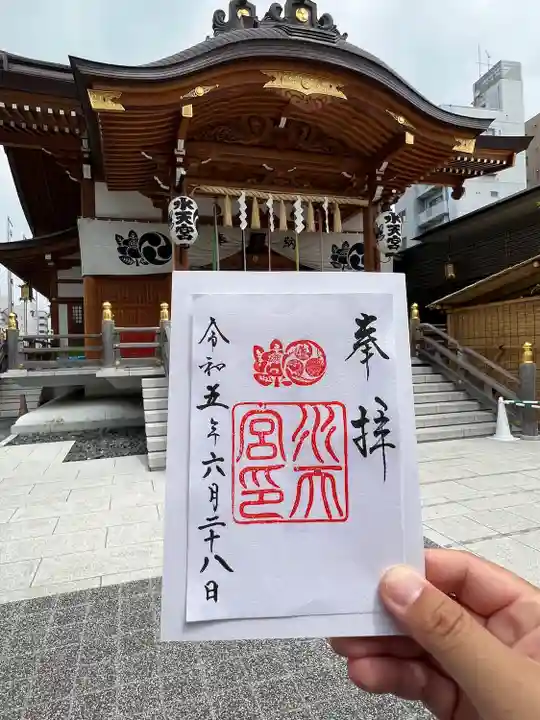 水天宮
奉納
水天宮
奉拝
水天宮印
令和五年六月二十八日